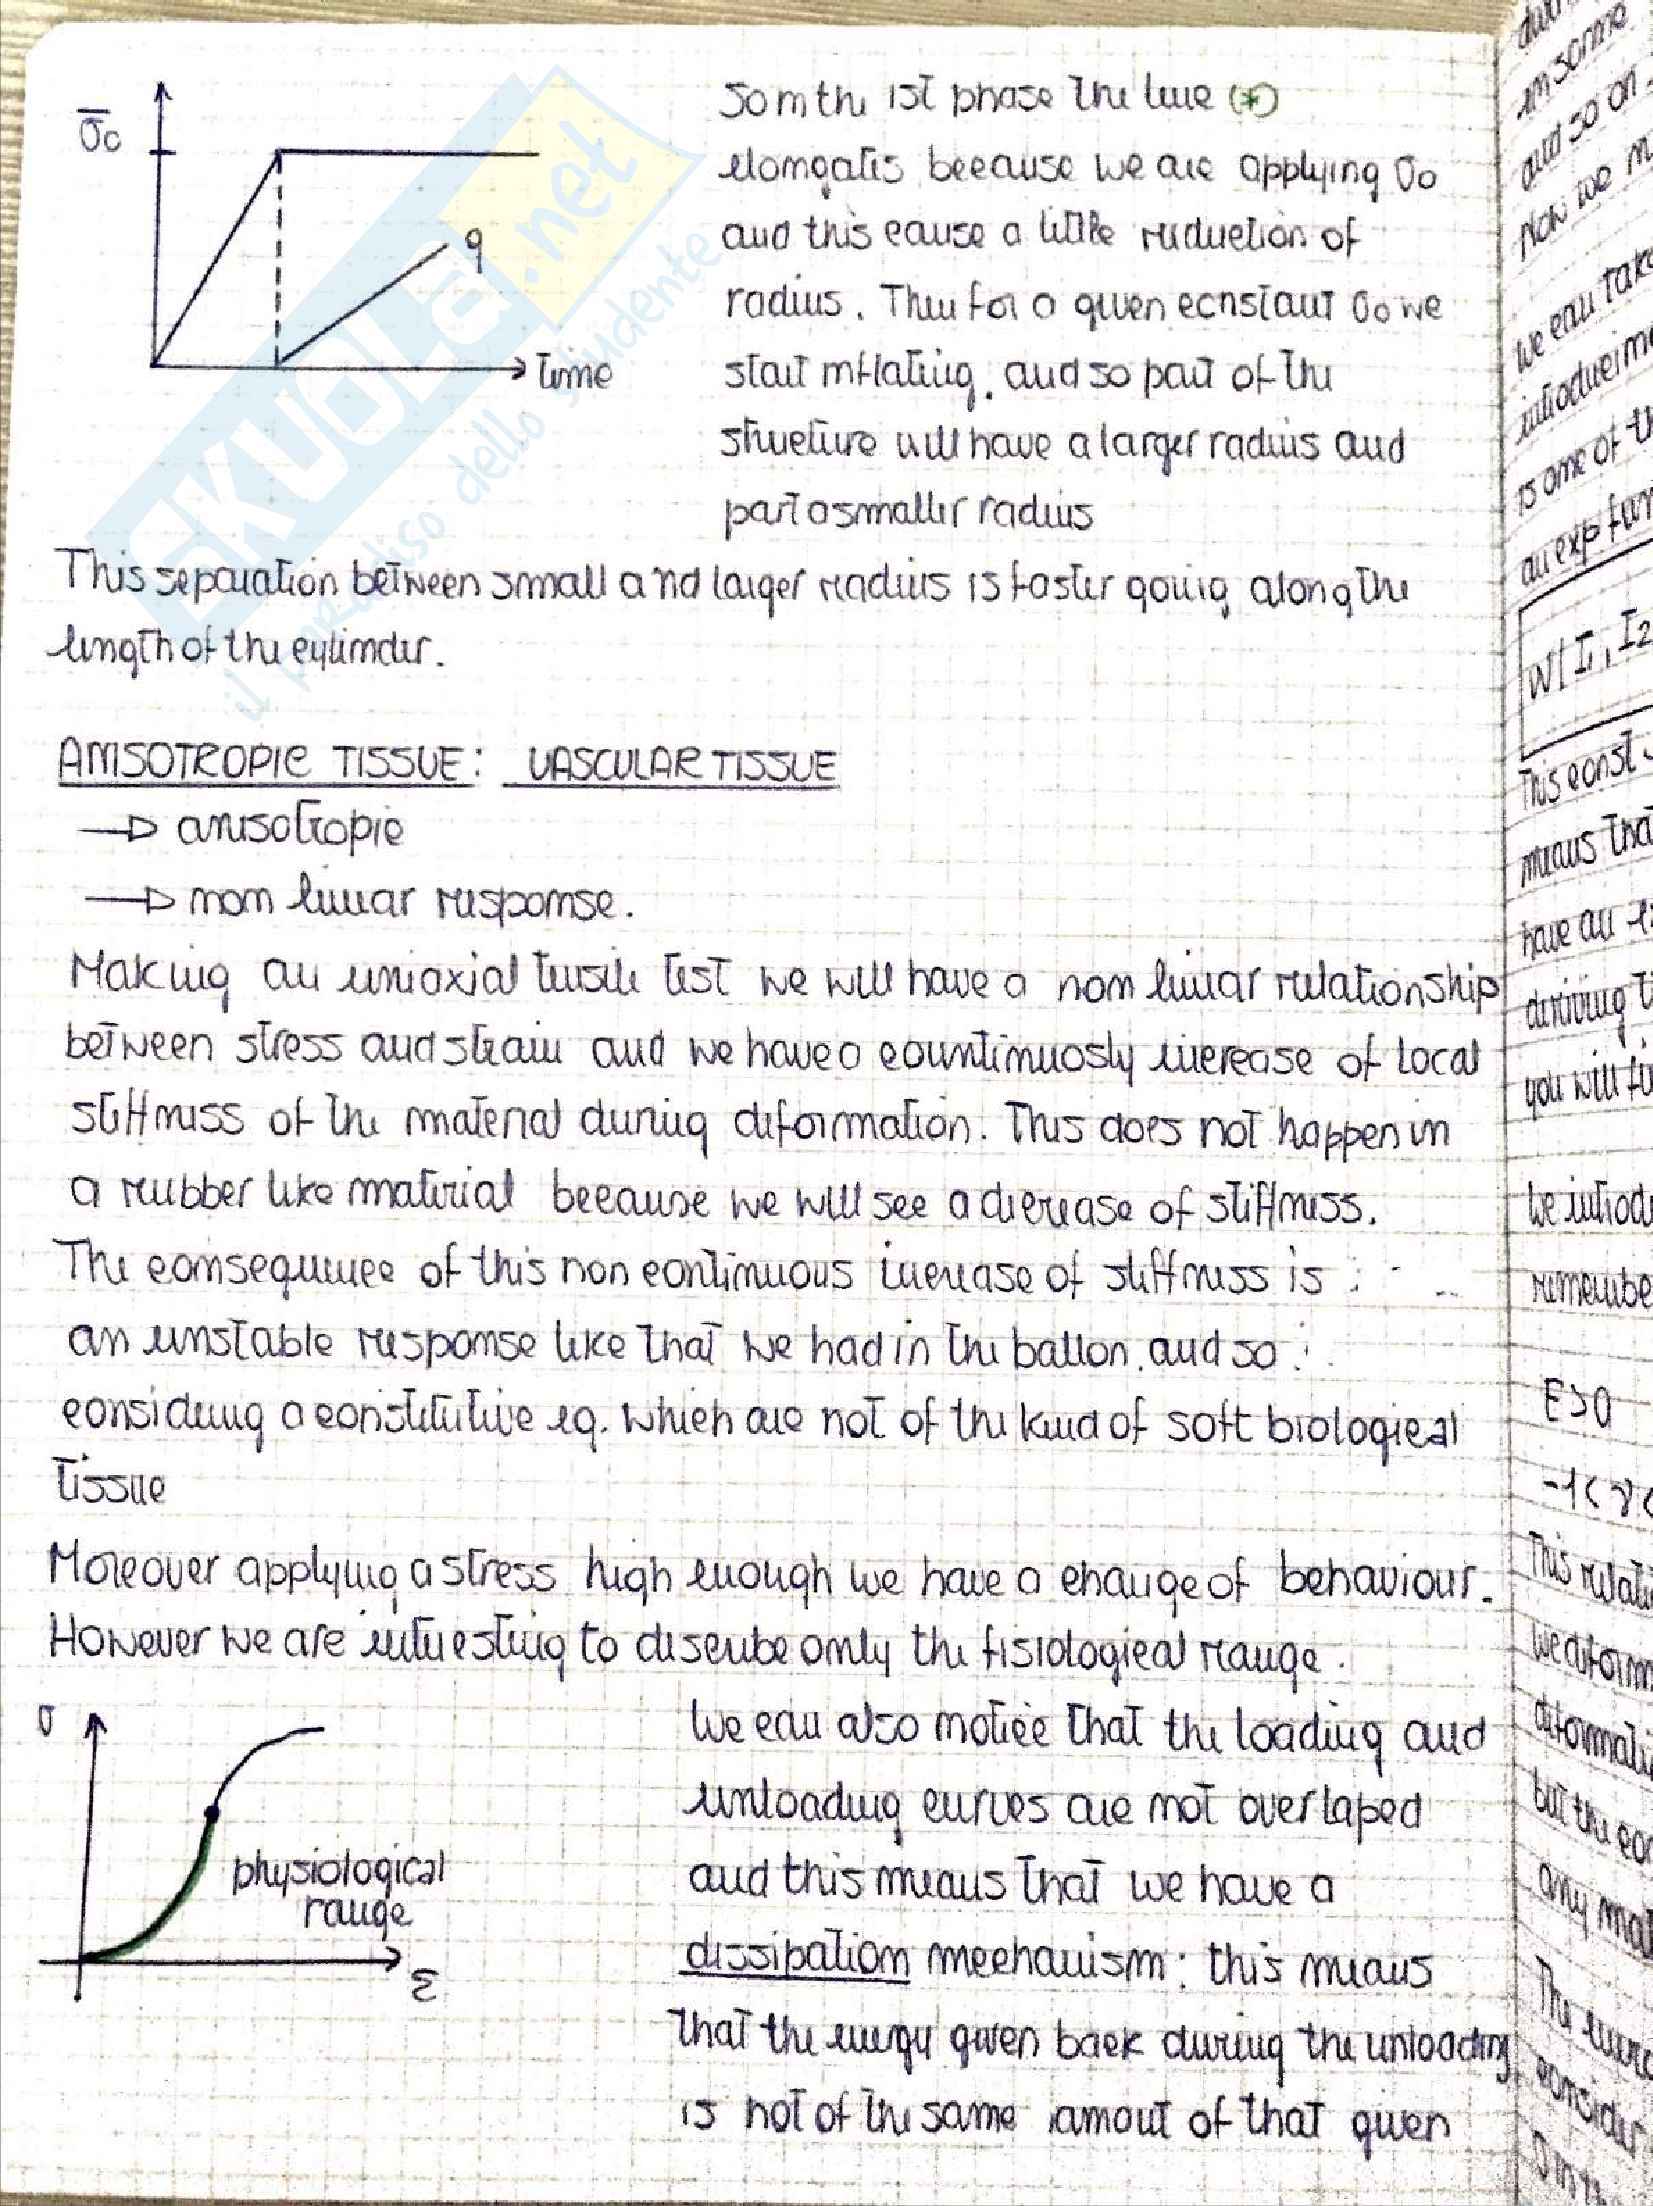 σ̄c
q
time
So in the 1st phase the line (*)
elongates because we are applying σ0
and this cause a little reduction of
radius. Then for a given constant σ0 we
start inflating, and so part of the
structure will have a larger radius and
part a smaller radius
This separation between small and larger radius is faster going along the
length of the cylinder.
ANISOTROPIC TISSUE: VASCULAR TISSUE
→ anisotropic
→ non linear response.
Making an uniaxial tensile test we will have a non linear relationship
between stress and strain and we have a countinuosly increase of local
stiffness of the material during deformation. This does not happen in
a rubber like material because we will see a decrease of stiffness.
The consequence of this non continuous increase of stiffness is
an unstable response like that we had in the ballon. and so
considering a constitutive eq. which are not of the kind of soft biological
tissue
Moreover applying a stress high enough we have a change of behaviour.
However we are interesting to describe only the fisiological range.
σ
physiological
range
ε
We can also notice that the loading and
unloading curves are not overlaped
and this means that we have a
dissipation mechanism: this means
that the energy given back during the unloading
is not of the same amout of that given
SKUOLA.net
il paradiso dello studente
in some
and so on.
Now we
we can take
is one of th
an exp fun
W(I1, I2
This const
means that
have an
deriving t
you will fi
We introd
remembe
E>0
-1<γ<
This relati
we deform
deformati
but the co
any mat
The
consider